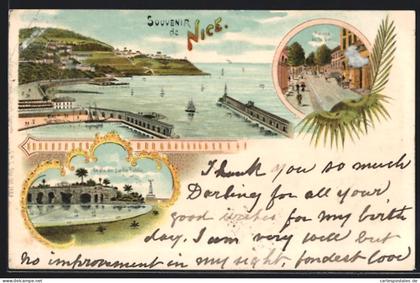 SOUVENIR
de
NICE.
Avenue
de la Gare
I thank you so much
Darling for all your
good wishes for my birth
day. I am very well but
no improvement in my sight, fondest love
www.cartespostales.de